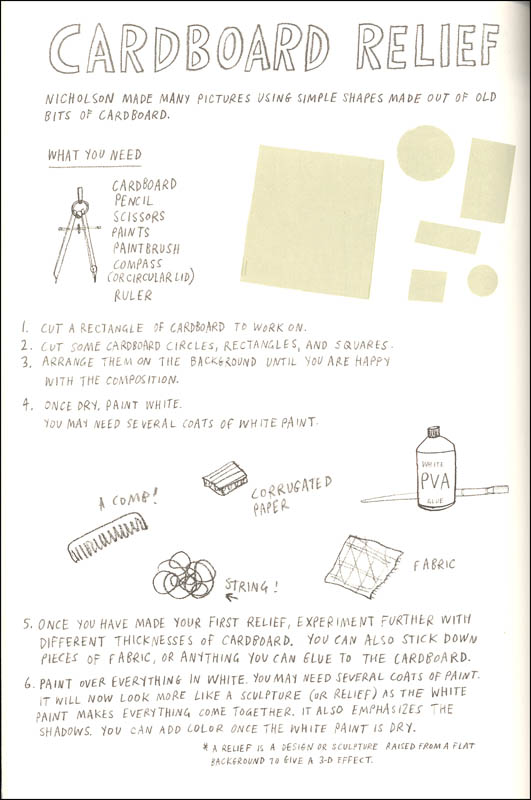 CARDBOARD RELIEF
NICHOLSON MADE MANY PICTURES USING SIMPLE SHAPES MADE OUT OF OLD
BITS OF CARDBOARD.
WHAT YOU NEED
CARDBOARD
PENCIL
SCISSORS
PAINTS
PAINTBRUSH
COMPASS
(OR CIRCULAR LID)
RULER
1. CUT A RECTANGLE OF CARDBOARD TO WORK ON.
2. CUT SOME CARDBOARD CIRCLES, RECTANGLES, AND SQUARES.
3. ARRANGE THEM ON THE BACKGROUND UNTIL YOU ARE HAPPY
WITH THE COMPOSITION.
4. ONCE DRY, PAINT WHITE.
YOU MAY NEED SEVERAL COATS OF WHITE PAINT.
A COMB!
CORRUGATED
PAPER
WHITE
PVA
GLUE
STRING!
FABRIC
5. ONCE YOU HAVE MADE YOUR FIRST RELIEF, EXPERIMENT FURTHER WITH
DIFFERENT THICKNESSES OF CARDBOARD. YOU CAN ALSO STICK DOWN
PIECES OF FABRIC, OR ANYTHING YOU CAN GLUE TO THE CARDBOARD.
6. PAINT OVER EVERYTHING IN WHITE. YOU MAY NEED SEVERAL COATS OF PAINT.
IT WILL NOW LOOK MORE LIKE A SCULPTURE (OR RELIEF) AS THE WHITE
PAINT MAKES EVERYTHING COME TOGETHER. IT ALSO EMPHASIZES THE
SHADOWS. YOU CAN ADD COLOR ONCE THE WHITE PAINT IS DRY.
* A RELIEF IS A DESIGN OR SCULPTURE RAISED FROM A FLAT
BACKGROUND TO GIVE A 3-D EFFECT.